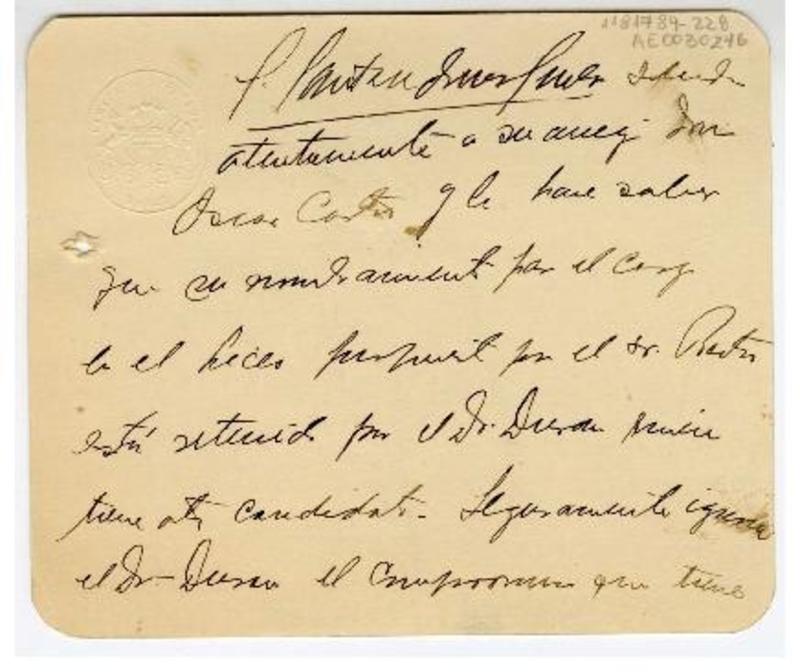 1181784-228
AE0030246
saluda
atentamente a su amigo Don
Oscar Castro y le hace saber
que su nombramiento por el cargo
en el Liceo propuesto por el Sr. Rector
está retenido por el Dr. Duran quien
tiene otro candidato. Seguramente ignora
el Dr Duran el compromiso que tiene